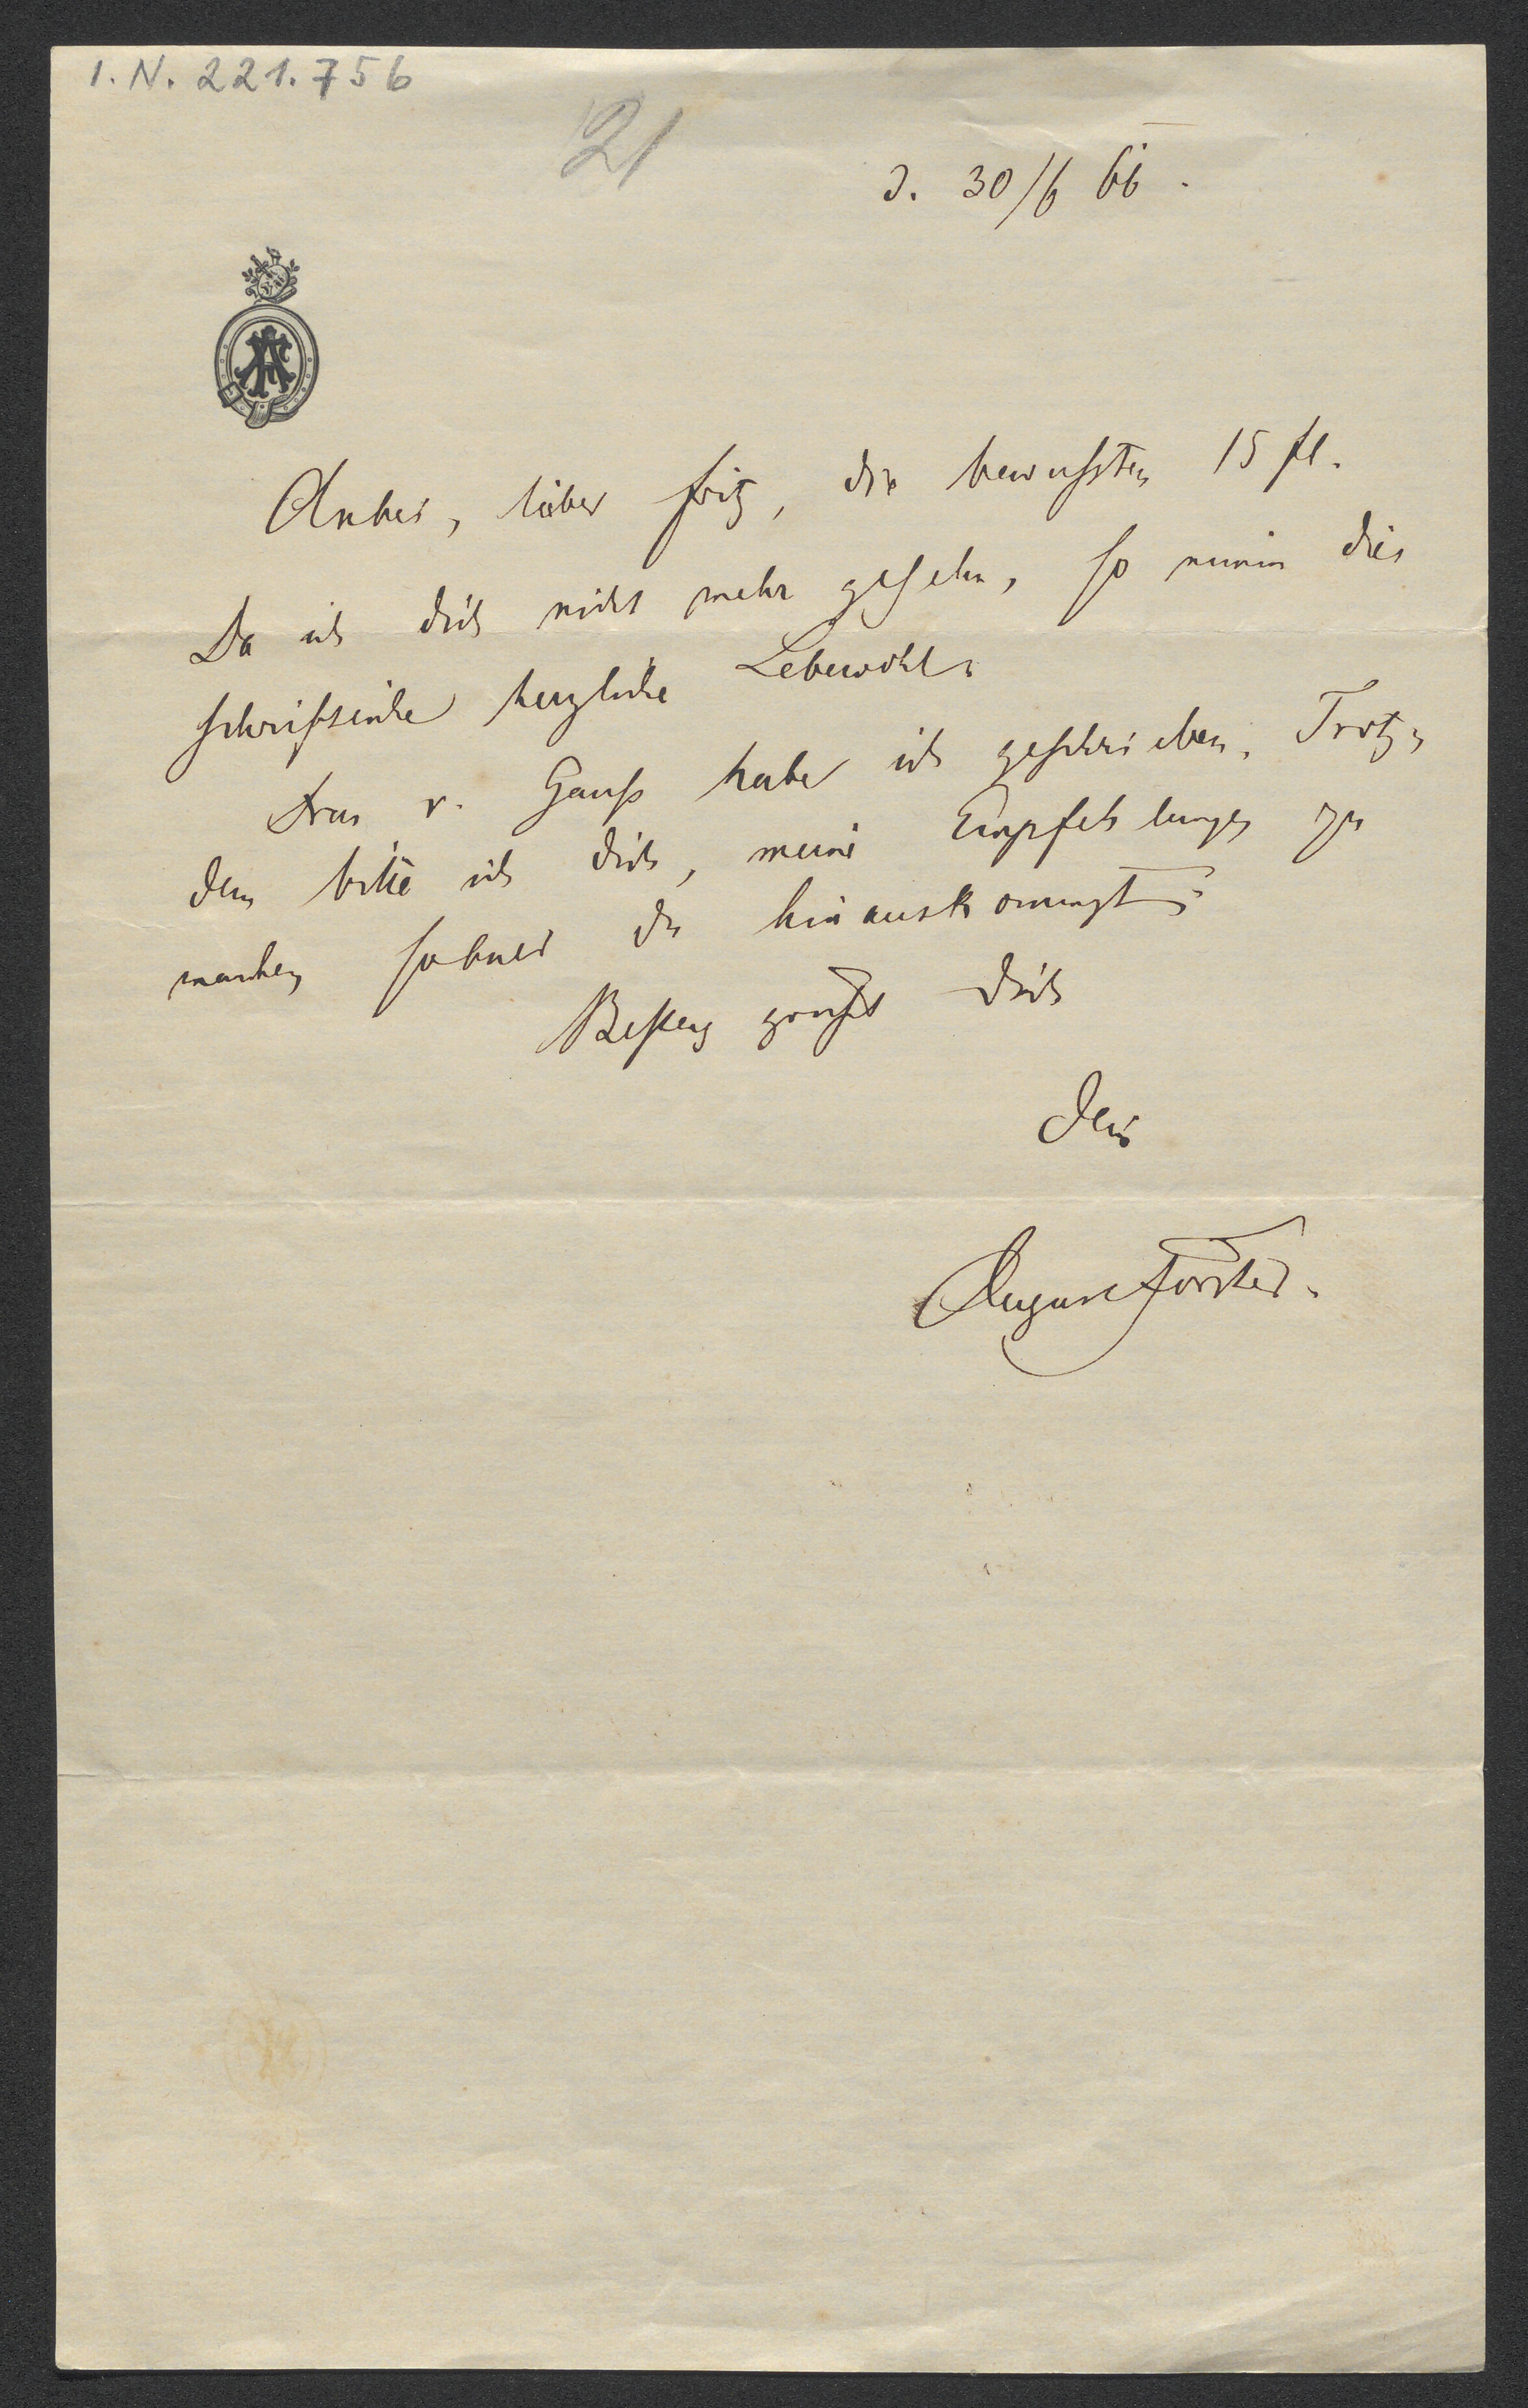 I.N. 221.756
21
d. 30/6 66.
Anbei, lieber Fritz, die bewußten 15 fl.
Da ich dich nicht mehr gesehn, so nimm dies
schriftliche herzliche Lebewohl.
Frau v. Gauß habe ich geschrieben. Trotz-
dem bitte ich dich, meine Empfehlungen zu
machen sobald du hinauskommst.
Bestens grüßt dich
dein
August Förster.